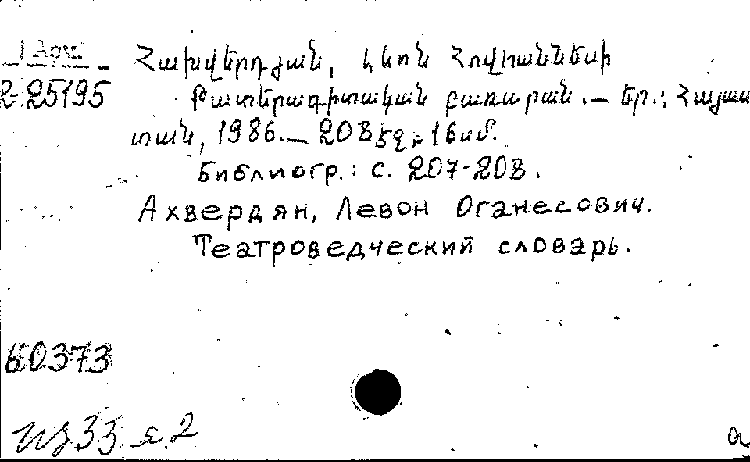 Հախվերդյան, Լևոն Հովհաննեսի
2-25195 Թատերագիտական բառարան.— Եր.: Հայաս
տան, 1986.— 208 էջ; 16սմ.
Библиогр.: с. 207-208.
Ахвердян, Левон Оганесович.
Театроведческий словарь.
60373